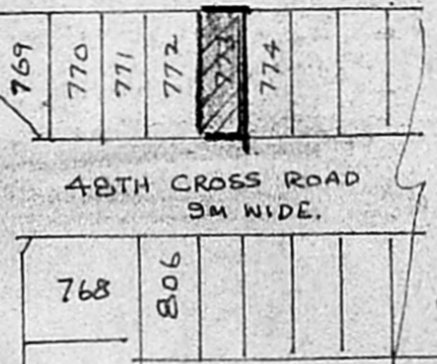 769
770
771
772
773
774
48TH CROSS ROAD
9M WIDE.
768
806